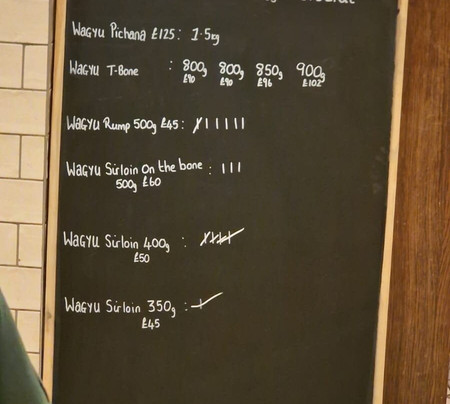 Wagyu Pichana £125: 1.5kg
Wagyu T-Bone : 800g 800g 850g 900g
£90 £90 £96 £102
Wagyu Rump 500g £45:
Wagyu Sirloin On the bone :
500g £60
Wagyu Sirloin 400g :
£50
Wagyu Sirloin 350g :
£45